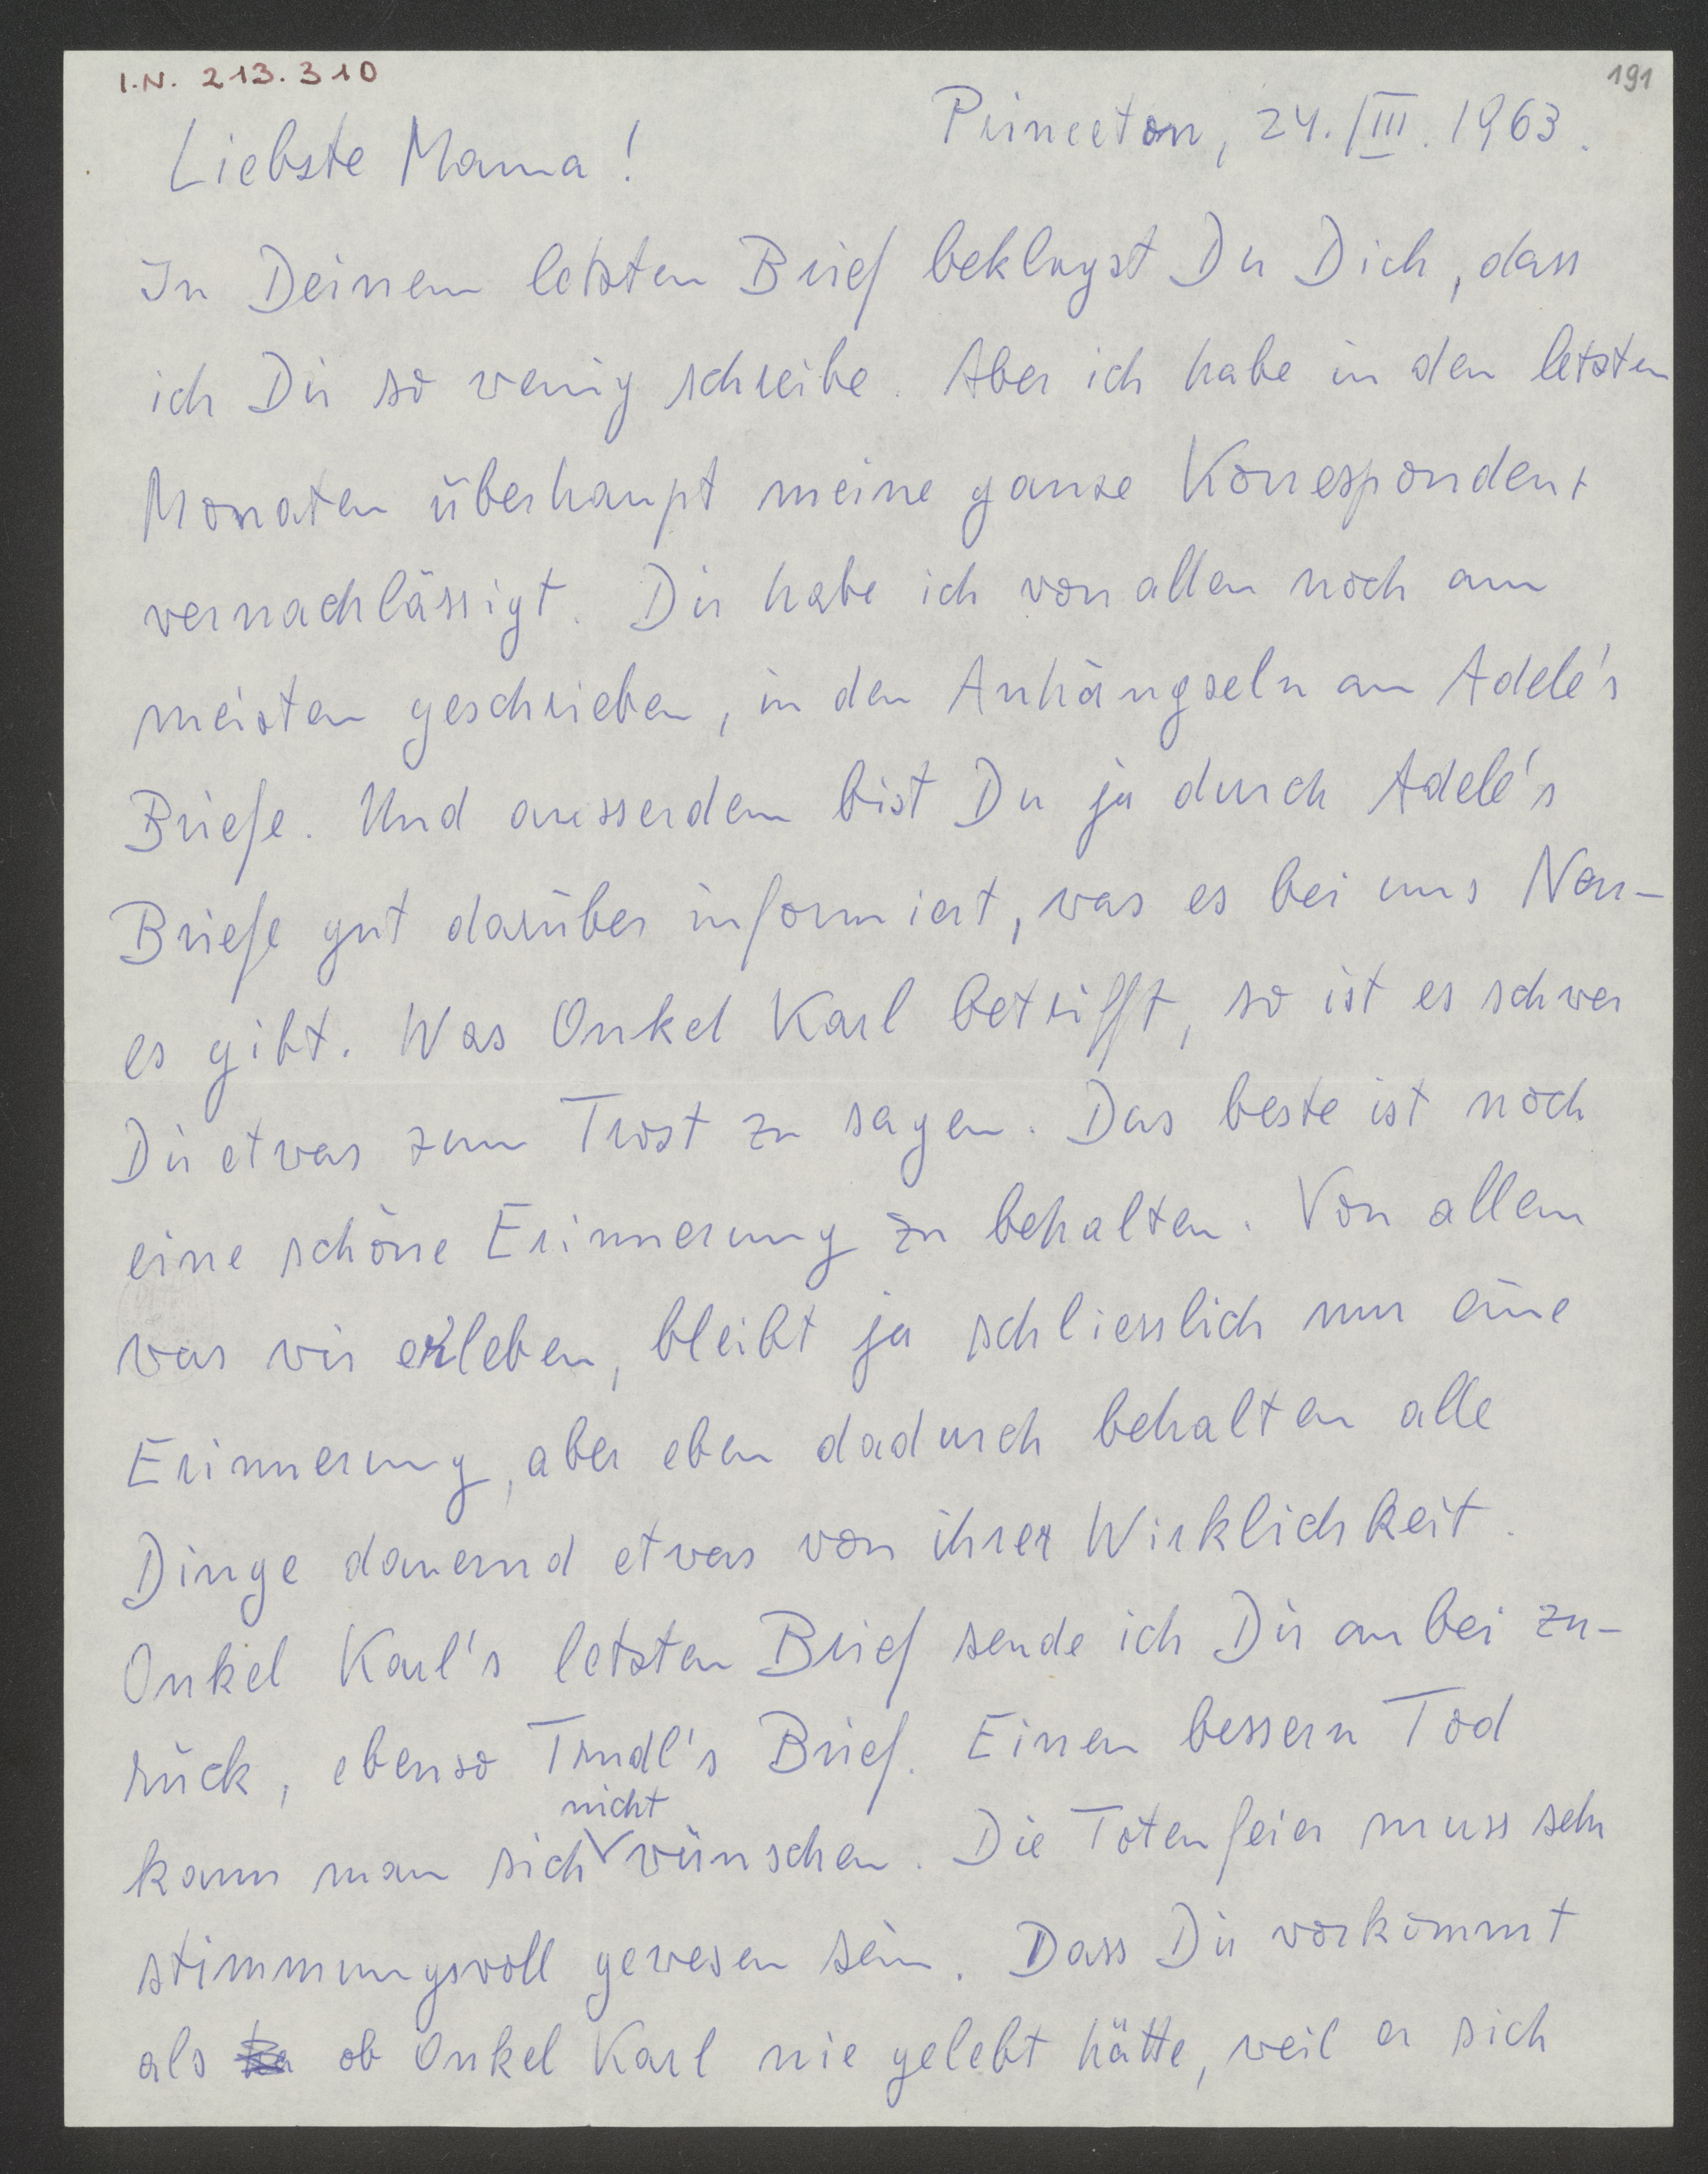 I.N. 213.310
191
Princeton, 24./III. 1963.
Liebste Mama!
In Deinem letzten Brief beklagst Du Dich, dass
ich Dir so wenig schreibe. Aber ich habe in den letzten
Monaten überhaupt meine ganze Korrespondenz
vernachlässigt. Dir habe ich von allen noch am
meisten geschrieben, in den Anhängseln an Adele's
Briefe. Und ausserdem bist Du ja durch Adele's
Briefe gut darüber informiert, was es bei uns Neu-
es gibt. Was Onkel Karl betrifft, so ist es schwer
Dir etwas zum Trost zu sagen. Das beste ist noch
eine schöne Erinnerung zu behalten. Von allem
was wir erleben, bleibt ja schliesslich nur eine
Erinnerung, aber eben dadurch behalten alle
Dinge dauernd etwas von ihrer Wirklichkeit.
Onkel Karl's letzten Brief sende ich Dir anbei zu-
rück, ebenso Trudl's Brief. Einen bessern Tod
kann man sich nicht wünschen. Die Totenfeier muss sehr
stimmungsvoll gewesen sein. Dass Dir vorkommt
als ob Onkel Karl nie gelebt hätte, weil er sich